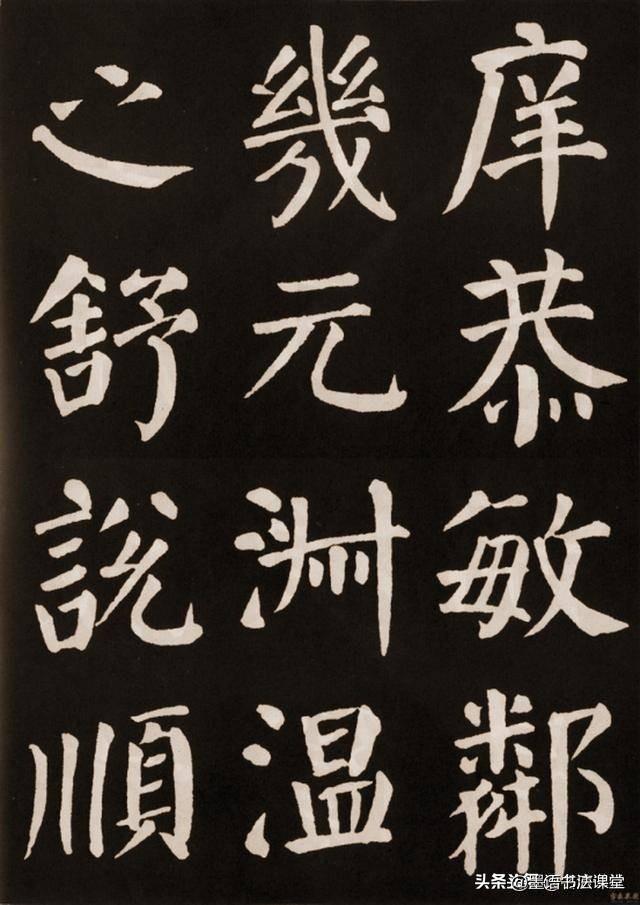 庠恭敏鄰
幾元渊温
之舒說順
头条@墨语书法课堂